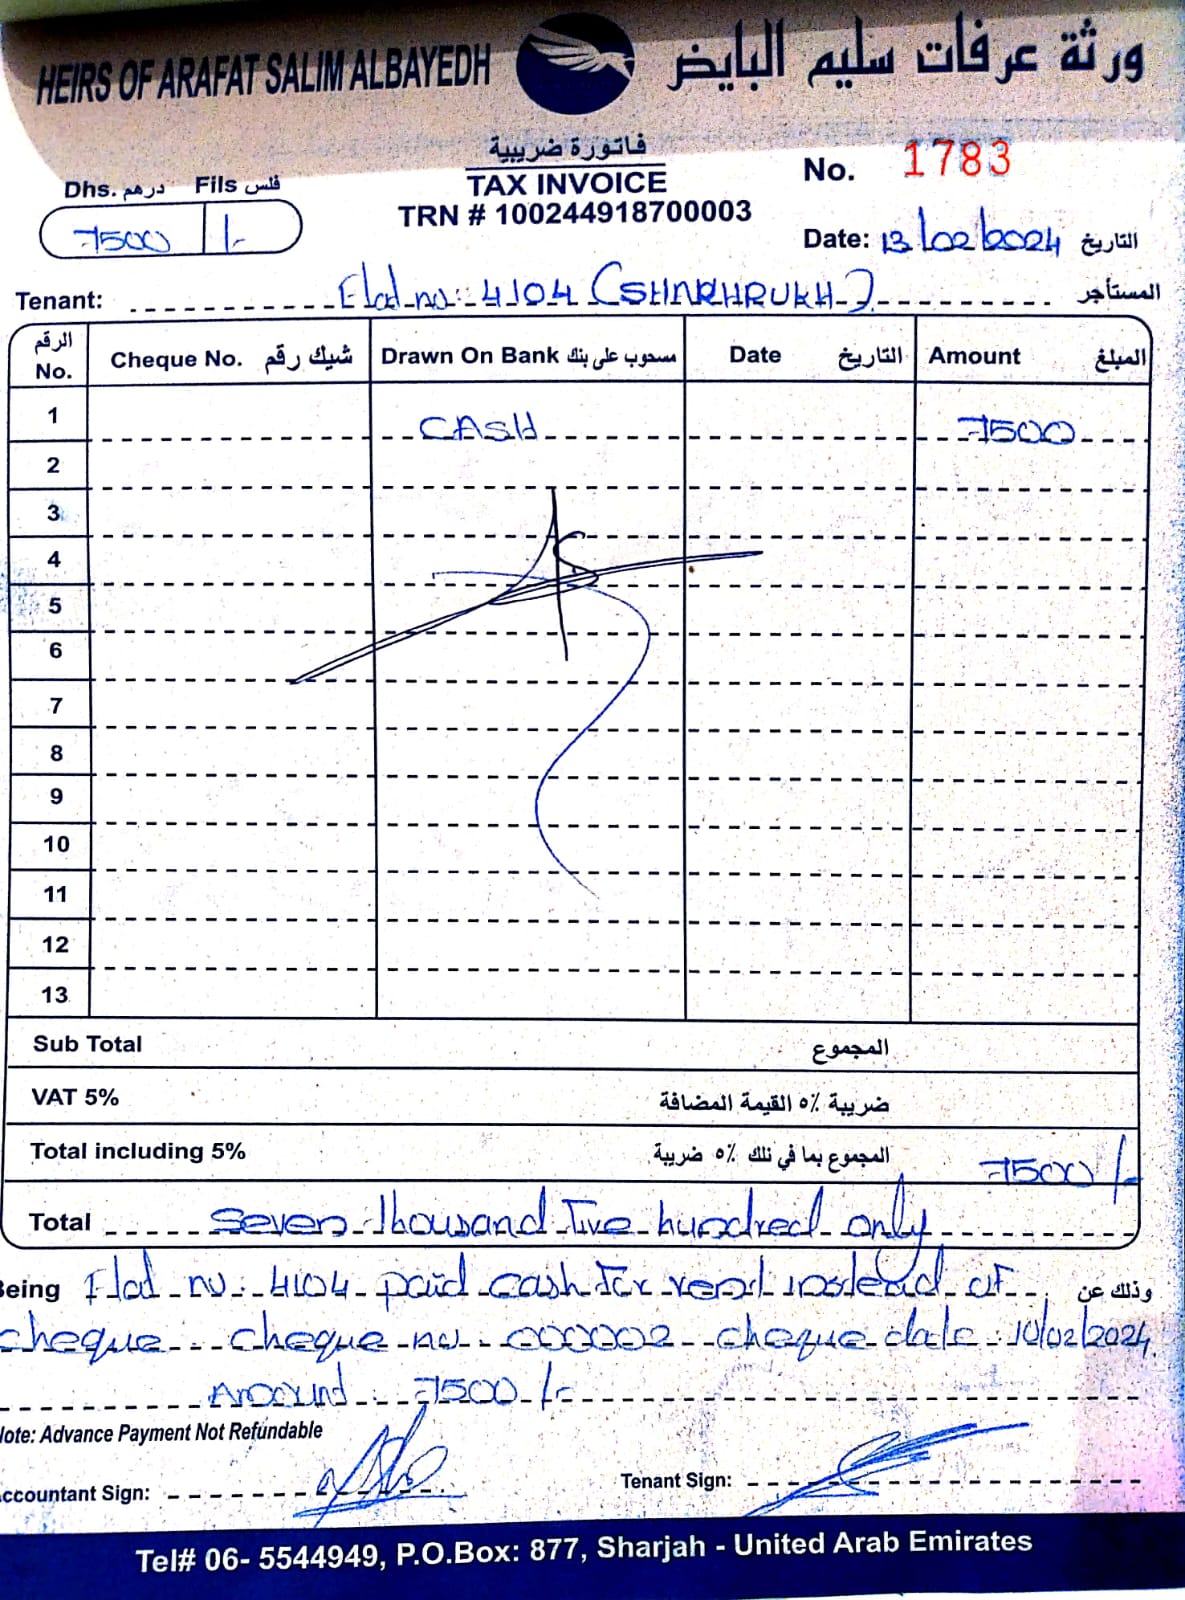 HEIRS OF ARAFAT SALIM ALBAYEDH ورثة عرفات سليم البايض
فاتورة ضريبية
TAX INVOICE
TRN # 100244918700003
Dhs. درهم Fils فلس
7500 /-
No. 1783
Date: 13/02/2024 التاريخ
Tenant: Flat no: 4104 (SHAHRUKH) المستأجر
الرقم No. Cheque No. شيك رقم Drawn On Bank مسحوب على بنك Date التاريخ Amount المبلغ
1 CASH 7500
2
3
4
5
6
7
8
9
10
11
12
13
Sub Total المجموع
VAT 5% ضريبة ٥٪ القيمة المضافة
Total including 5% المجموع بما في ذلك ٥٪ ضريبة 7500/-
Total Seven Thousand Five hundred only
Being Flat no: 4104 paid cash for rent instead of وذلك عن
cheque cheque no. 000002 cheque date: 10/02/2024
Amount: 7500/-
Note: Advance Payment Not Refundable
Accountant Sign: Tenant Sign:
Tel# 06- 5544949, P.O.Box: 877, Sharjah - United Arab Emirates